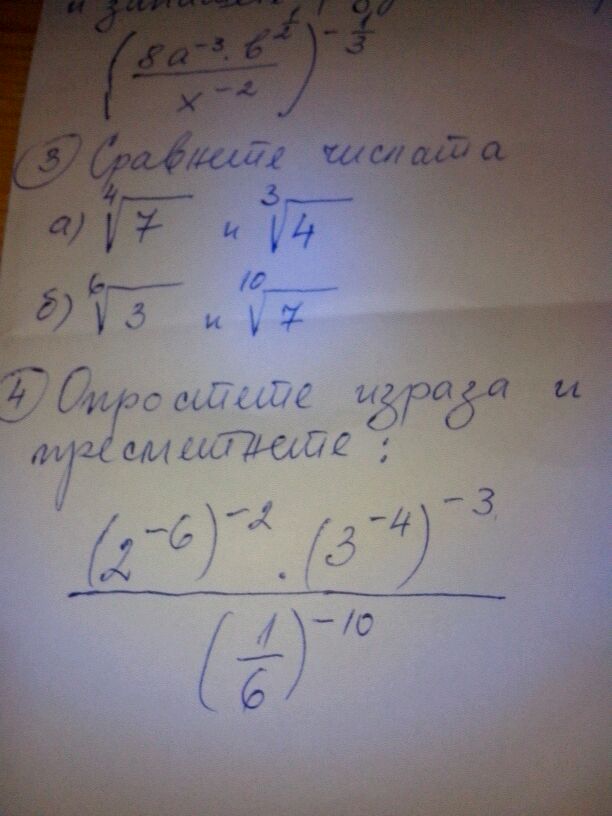 и запишете
(8a⁻³·b^½ / x⁻²)^(-1/3)
③ Сравнете числата
а) ⁴√7 и ³√4
б) ⁶√3 и ¹⁰√7
④ Опростете израза и
пресметнете:
(2⁻⁶)⁻² . (3⁻⁴)⁻³
(1/6)⁻¹⁰